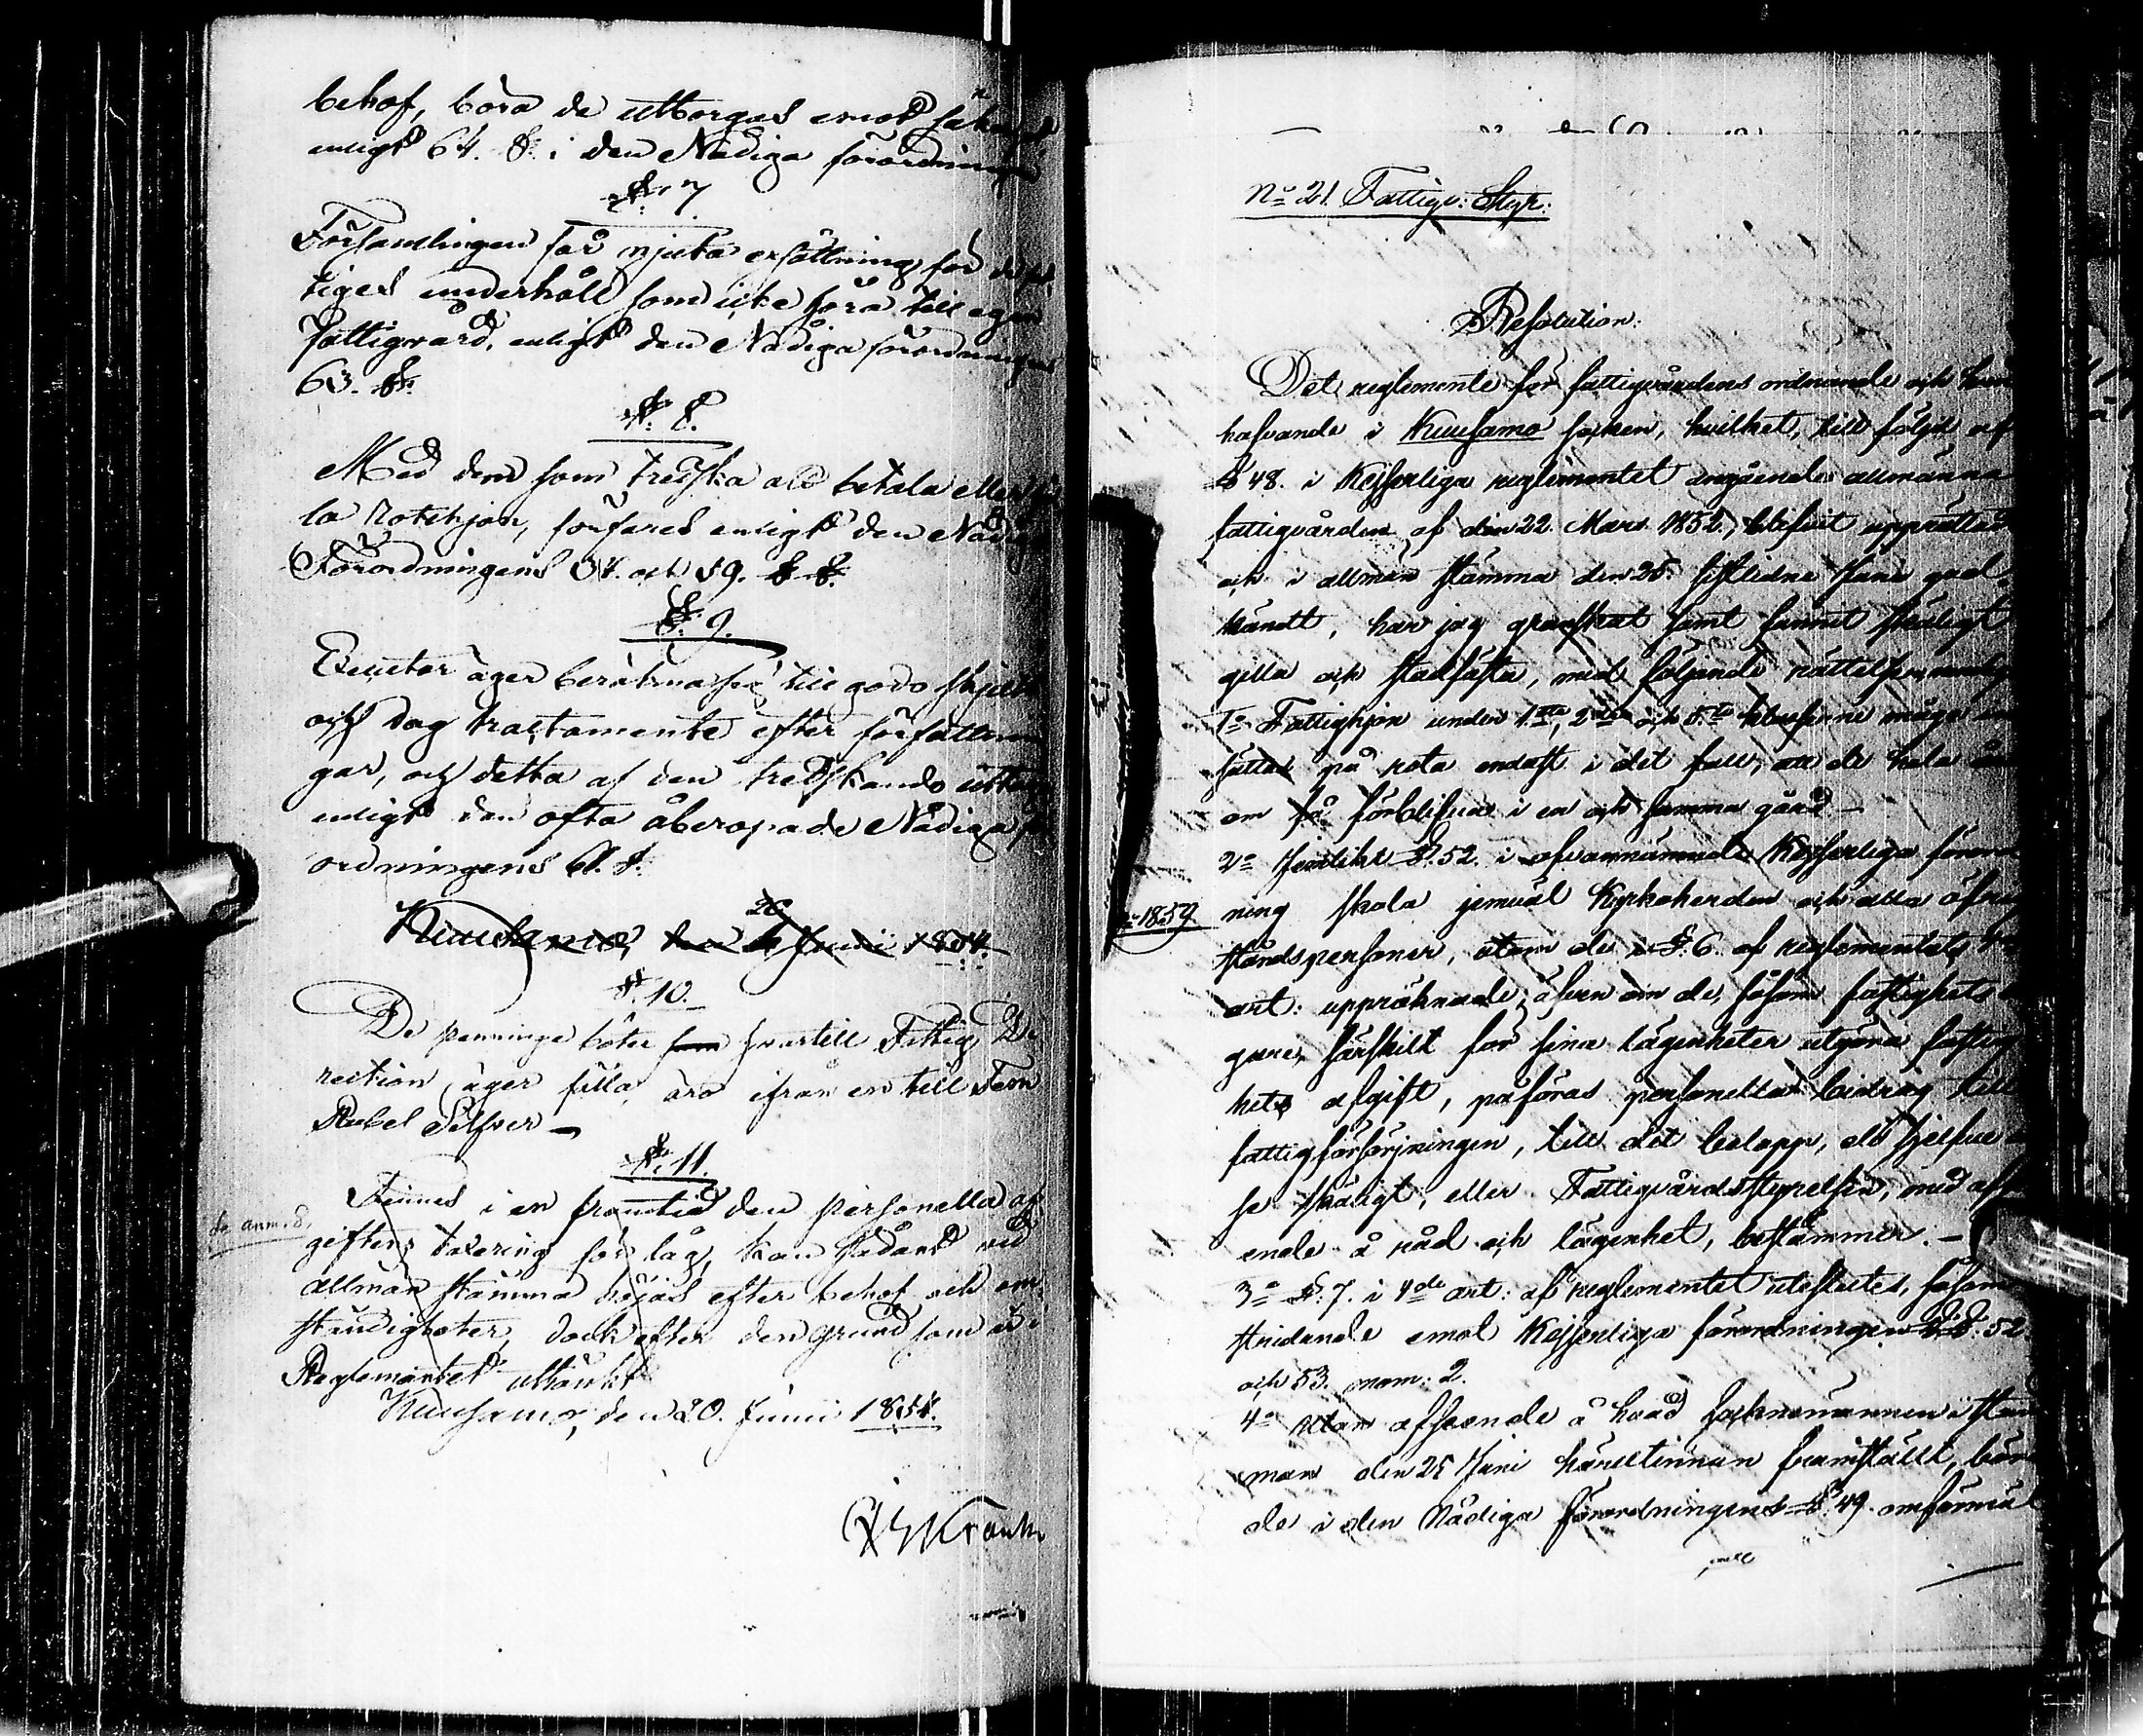 behof, böra de utborgas emot säker
enligt 64. §. i den Nådiga förordningen
§. 7
Församlingen får njuta ersättning för de fat
tiges underhåll som icke höra till egen
fattigvård, enligt den Nådiga förordningens
63. §.
§. 8.
Med dem som tredska att betala eller
la Rotehjon, förfares enligt den Nådiga
Förordningens 54. och 59. § §.
§. 9.
Executor äger beräkna sig till godo skjuts
och dag tractamente efter författnin
gar, och detta af den tredskande uttagas
enligt den ofta åberopade Nådiga för
ordningens 61. §.
20
Kuusamo, den Junii 1854.
§. 10.
De penninge böter som hvartill Fattig Di
rection äger fälla äro ifrån en till Fem
Rubel Silfver —
§. 11.
Finnes i en framtid den personella af
se anm:d.
giftens taxering för låg, kan sådant vid
allmän stämma höjas efter behof och om
ständigheter, dock efter den grund som är i
Reglementet uttänkt
Kuusamo, den 20. Junii 1854.
Nº 21. Fattigv: Styr:
Resolution:
Det reglemente för fattigvårdens ordnande och hand
hafvande i Kuusamo socken, hvilket, till följd af
§ 48. i Kejserliga reglementet angående allmänna
fattigvården af den 22. Mars 1852., blifvit upprättadt
och i allmän stämma den 25. sistlidne Juni god-
kändt, har jag granskat samt funnit skäligt
gilla och stadfästa, med följande rättelser, nemlig
1º Fattighjon under 1sta, 2dra och 3dje klasserne måge in
sättas på rota endast i det fall, att de hela år
om få förblifva i en och samma gård —
2º Jemlikt §. 52. i ofvannämnde Kejserliga förord
º 1859
ning skola jemväl Kyrkoherden och alla öfrige
ståndspersoner, utom de i §. 6. af reglementets
art: uppräknade, äfven om de, såsom fastighets ä
gare, särskilt för sina lägenheter utgöra fastig
hets afgift, påföras personella bidrag till
fattigförsörjningen, till det belopp, de sjelfve
se skäligt, eller Fattigvårdsstyrelsen, med afse
ende å råd och lägenhet, bestämmer. —
3º §. 7. i 4de art: af reglementet uteslutes, såsom
stridande emot Kejserliga förordningens §§. 52
och 53. mom: 2.
4º Utan afseende å hvad socknemännen i stäm
man den 25 Juni härutinnan framställt, böra
de i den Nådiga förordningens §. 49. omförmäl